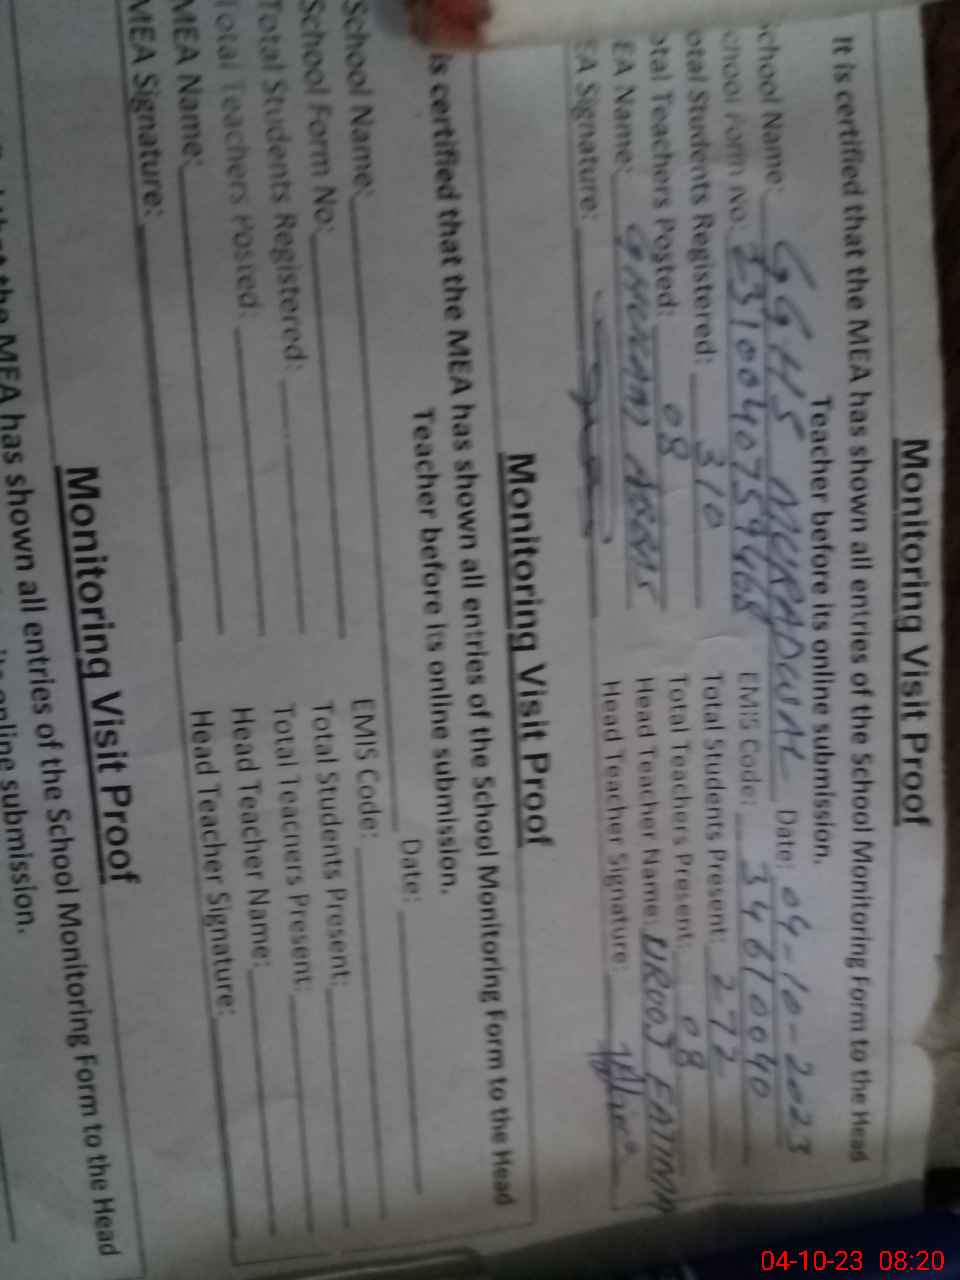 Monitoring Visit Proof
It is certified that the MEA has shown all entries of the School Monitoring Form to the Head
Teacher before its online submission.
chool Name: GGHS MURADWAL Date: 04-10-2023
chool Form No. EMIS Code: 34610040
otal Students Registered: 310 Total Students Present: 272
otal Teachers Posted: 08 Total Teachers Present: 08
EA Name: GHULAM ABBAS Head Teacher Name: UROOJ FATIMA
EA Signature: Head Teacher Signature:
Monitoring Visit Proof
is certified that the MEA has shown all entries of the School Monitoring Form to the Head
Teacher before its online submission.
School Name: Date:
School Form No: EMIS Code:
Total Students Registered: Total Students Present:
Total Teachers Posted: Total Teachers Present:
MEA Name: Head Teacher Name:
MEA Signature: Head Teacher Signature:
Monitoring Visit Proof
that the MEA has shown all entries of the School Monitoring Form to the Head
online submission.
04-10-23 08:20